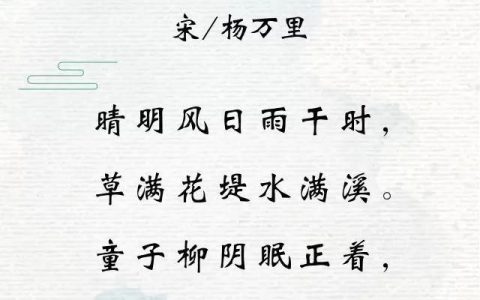 宋/杨万里
晴明风日雨干时，
草满花堤水满溪。
童子柳阴眠正着，